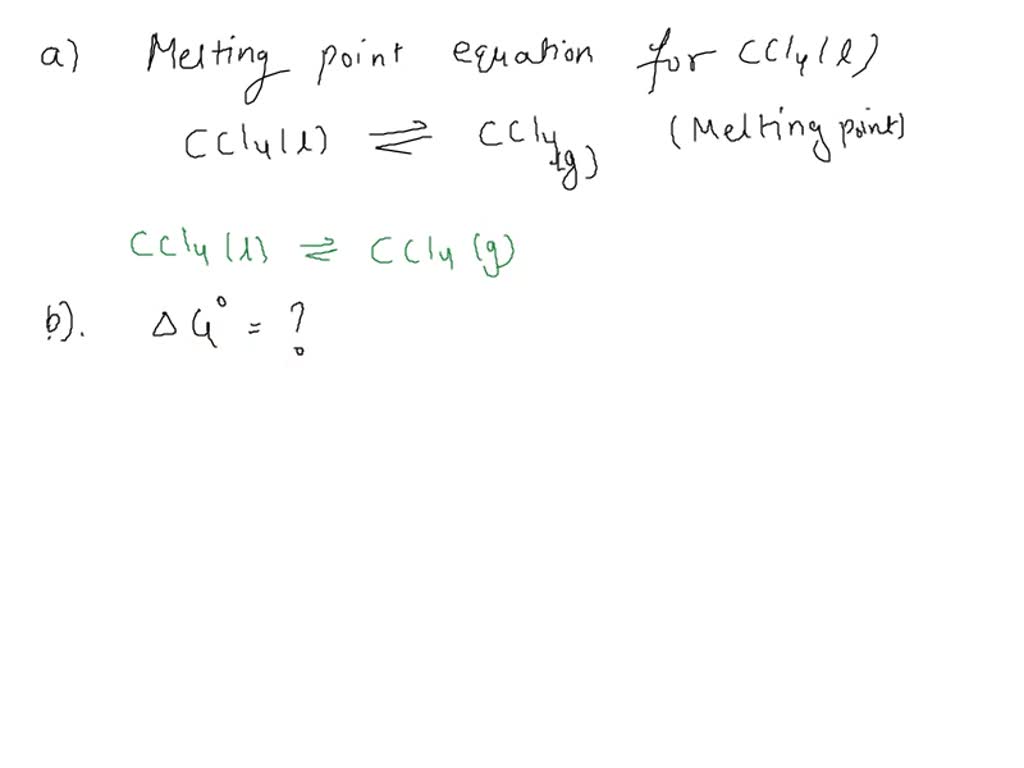 a) Melting point equation for CCl4(l)
CCl4(l) ⇌ CCl4(g) (Melting point)
CCl4(l) ⇌ CCl4(g)
b). ΔG° = ?